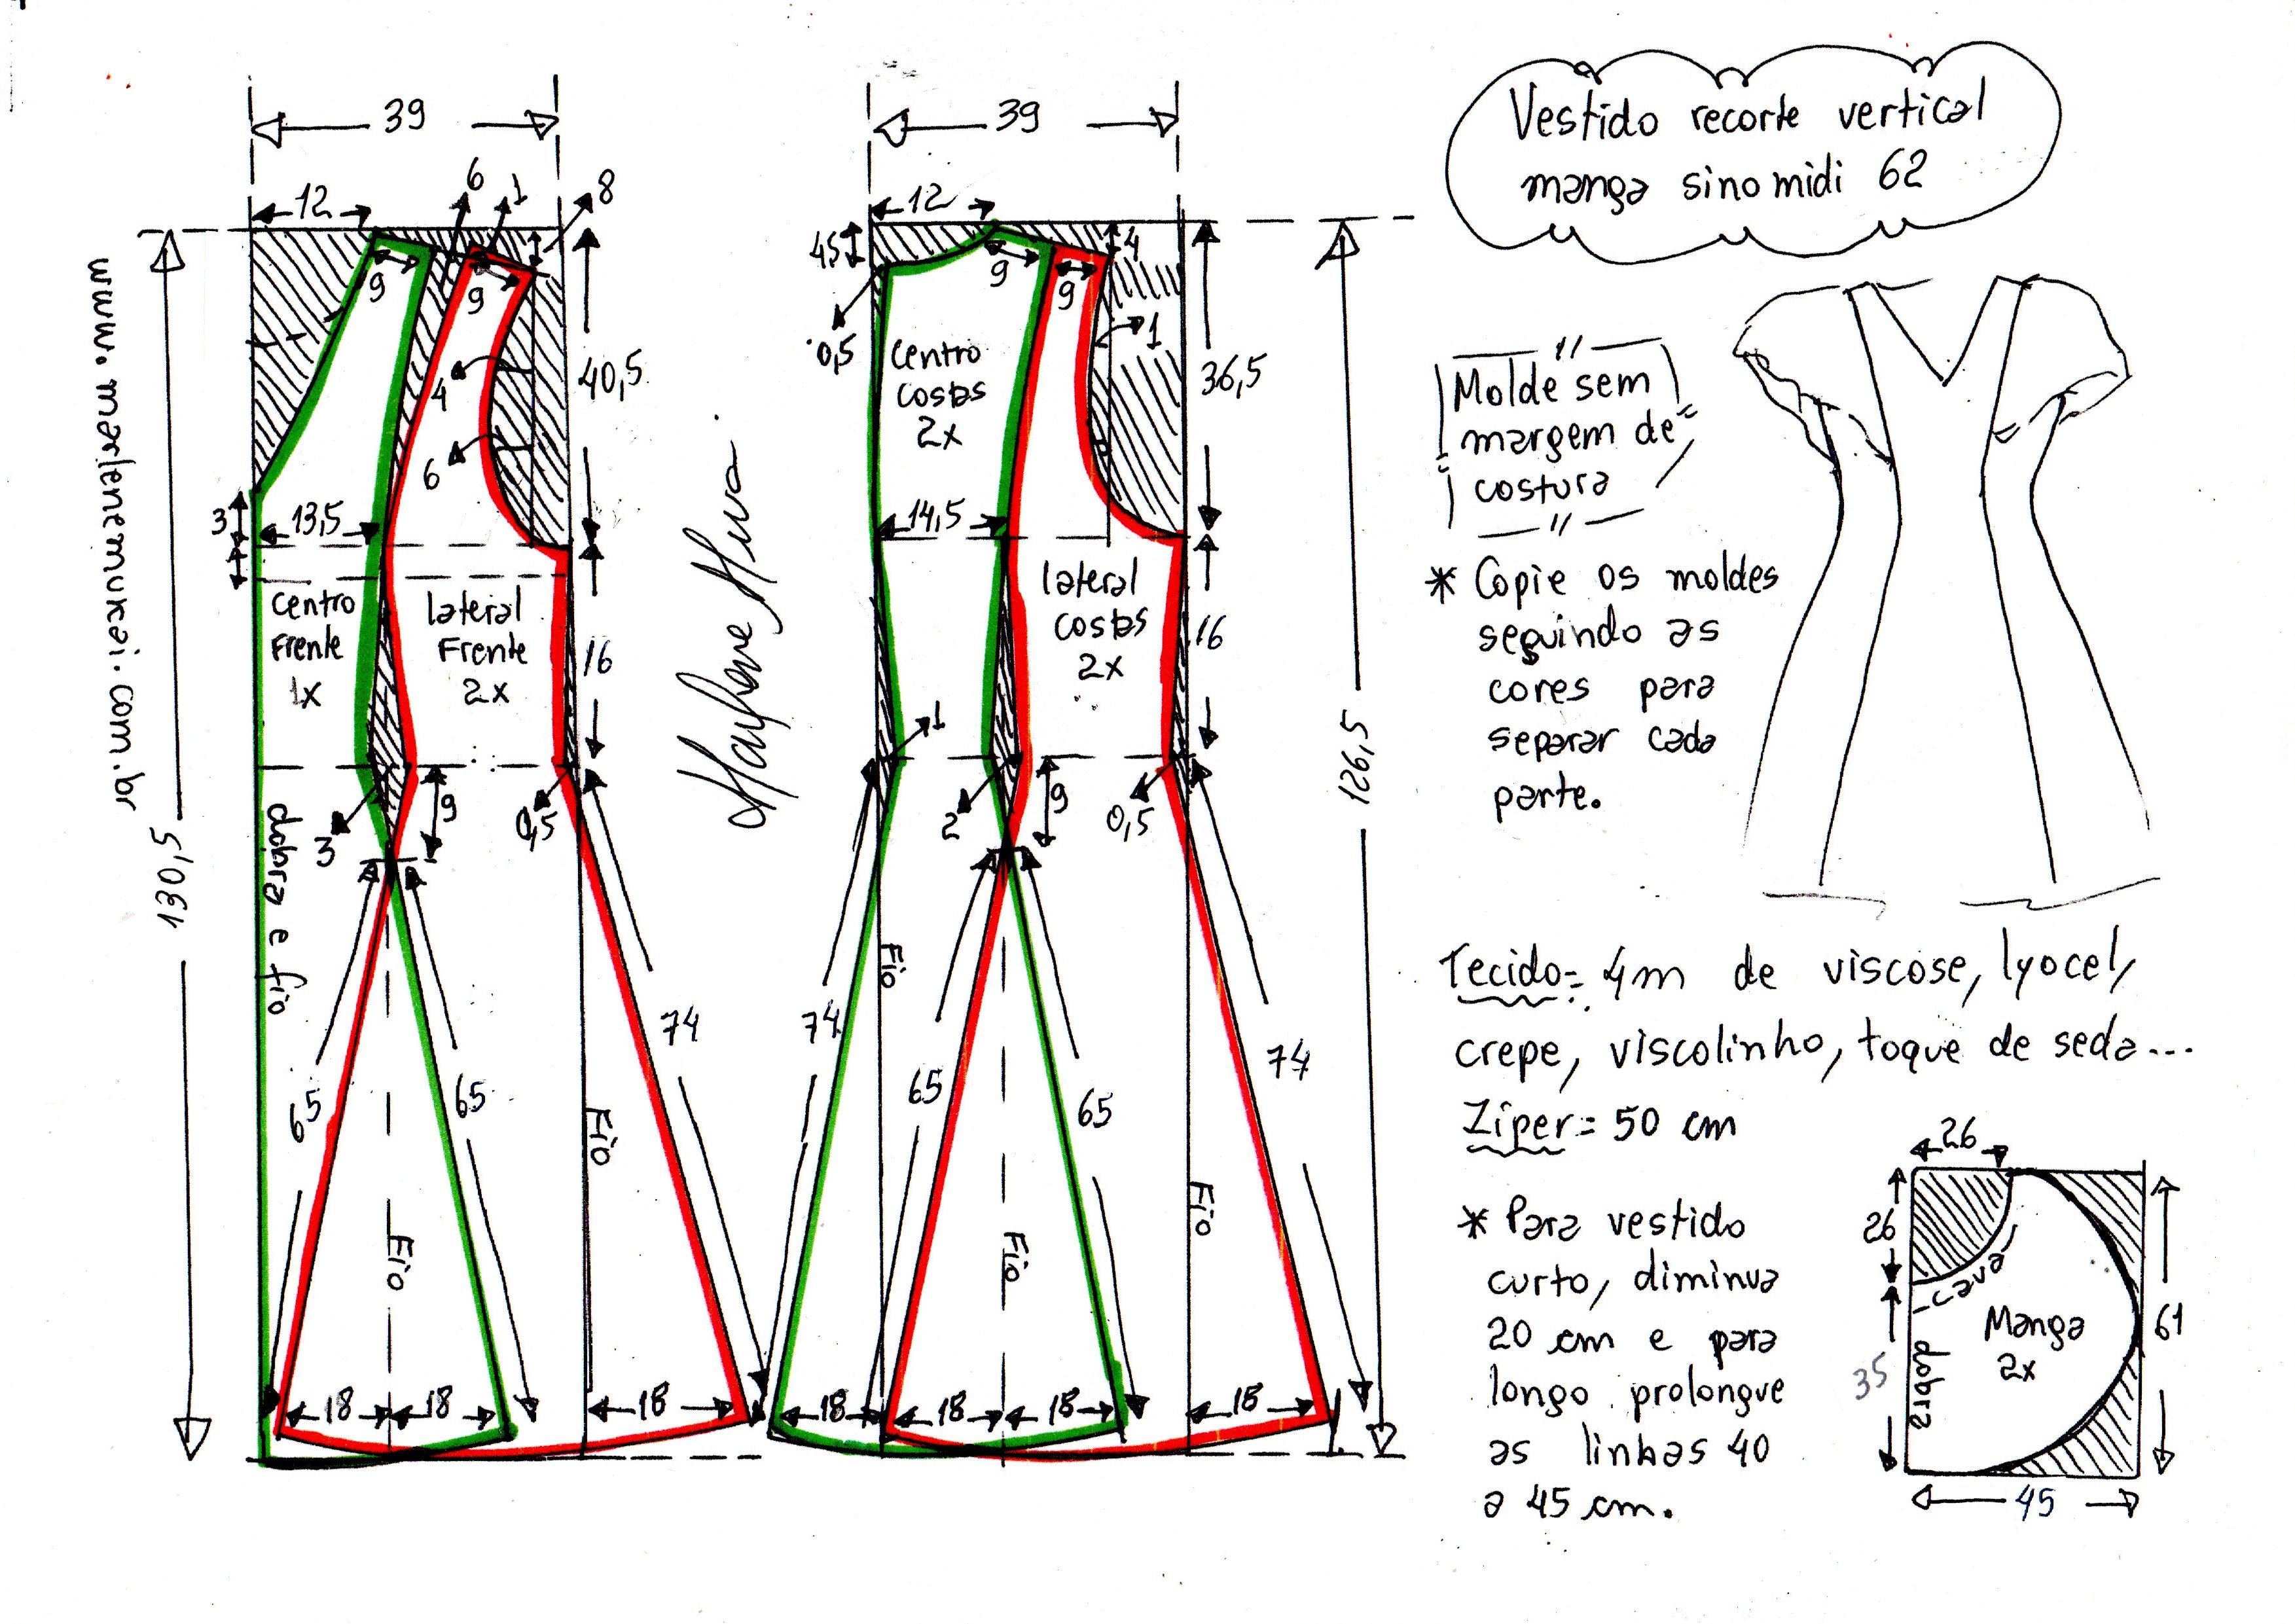 Vestido recorte vertical
manga sino midi 62
www.marlenemukai.com.br
39
12
6
1
8
9
9
40,5
4
6
3
13,5
Centro
Frente
1x
lateral
Frente
2x
16
9
3
0,5
dobra e fio
130,5
65
65
74
Fio
Fio
18
18
18
39
12
45
4
9
9
0,5
1
36,5
Centro
Costas
2x
14,5
lateral
costas
2x
16
1
2
9
0,5
126,5
Fio
74
65
65
74
Fio
Fio
18
18
18
18
Molde sem
margem de
costura
* Copie os moldes
seguindo as
cores para
separar cada
parte.
Tecido = 4m de viscose, lyocel,
crepe, viscolinho, toque de seda...
Ziper = 50 cm
* Para vestido
curto, diminua
20 cm e para
longo prolongue
as linhas 40
a 45 cm.
26
26
cava
Manga
2x
35
dobra
61
45